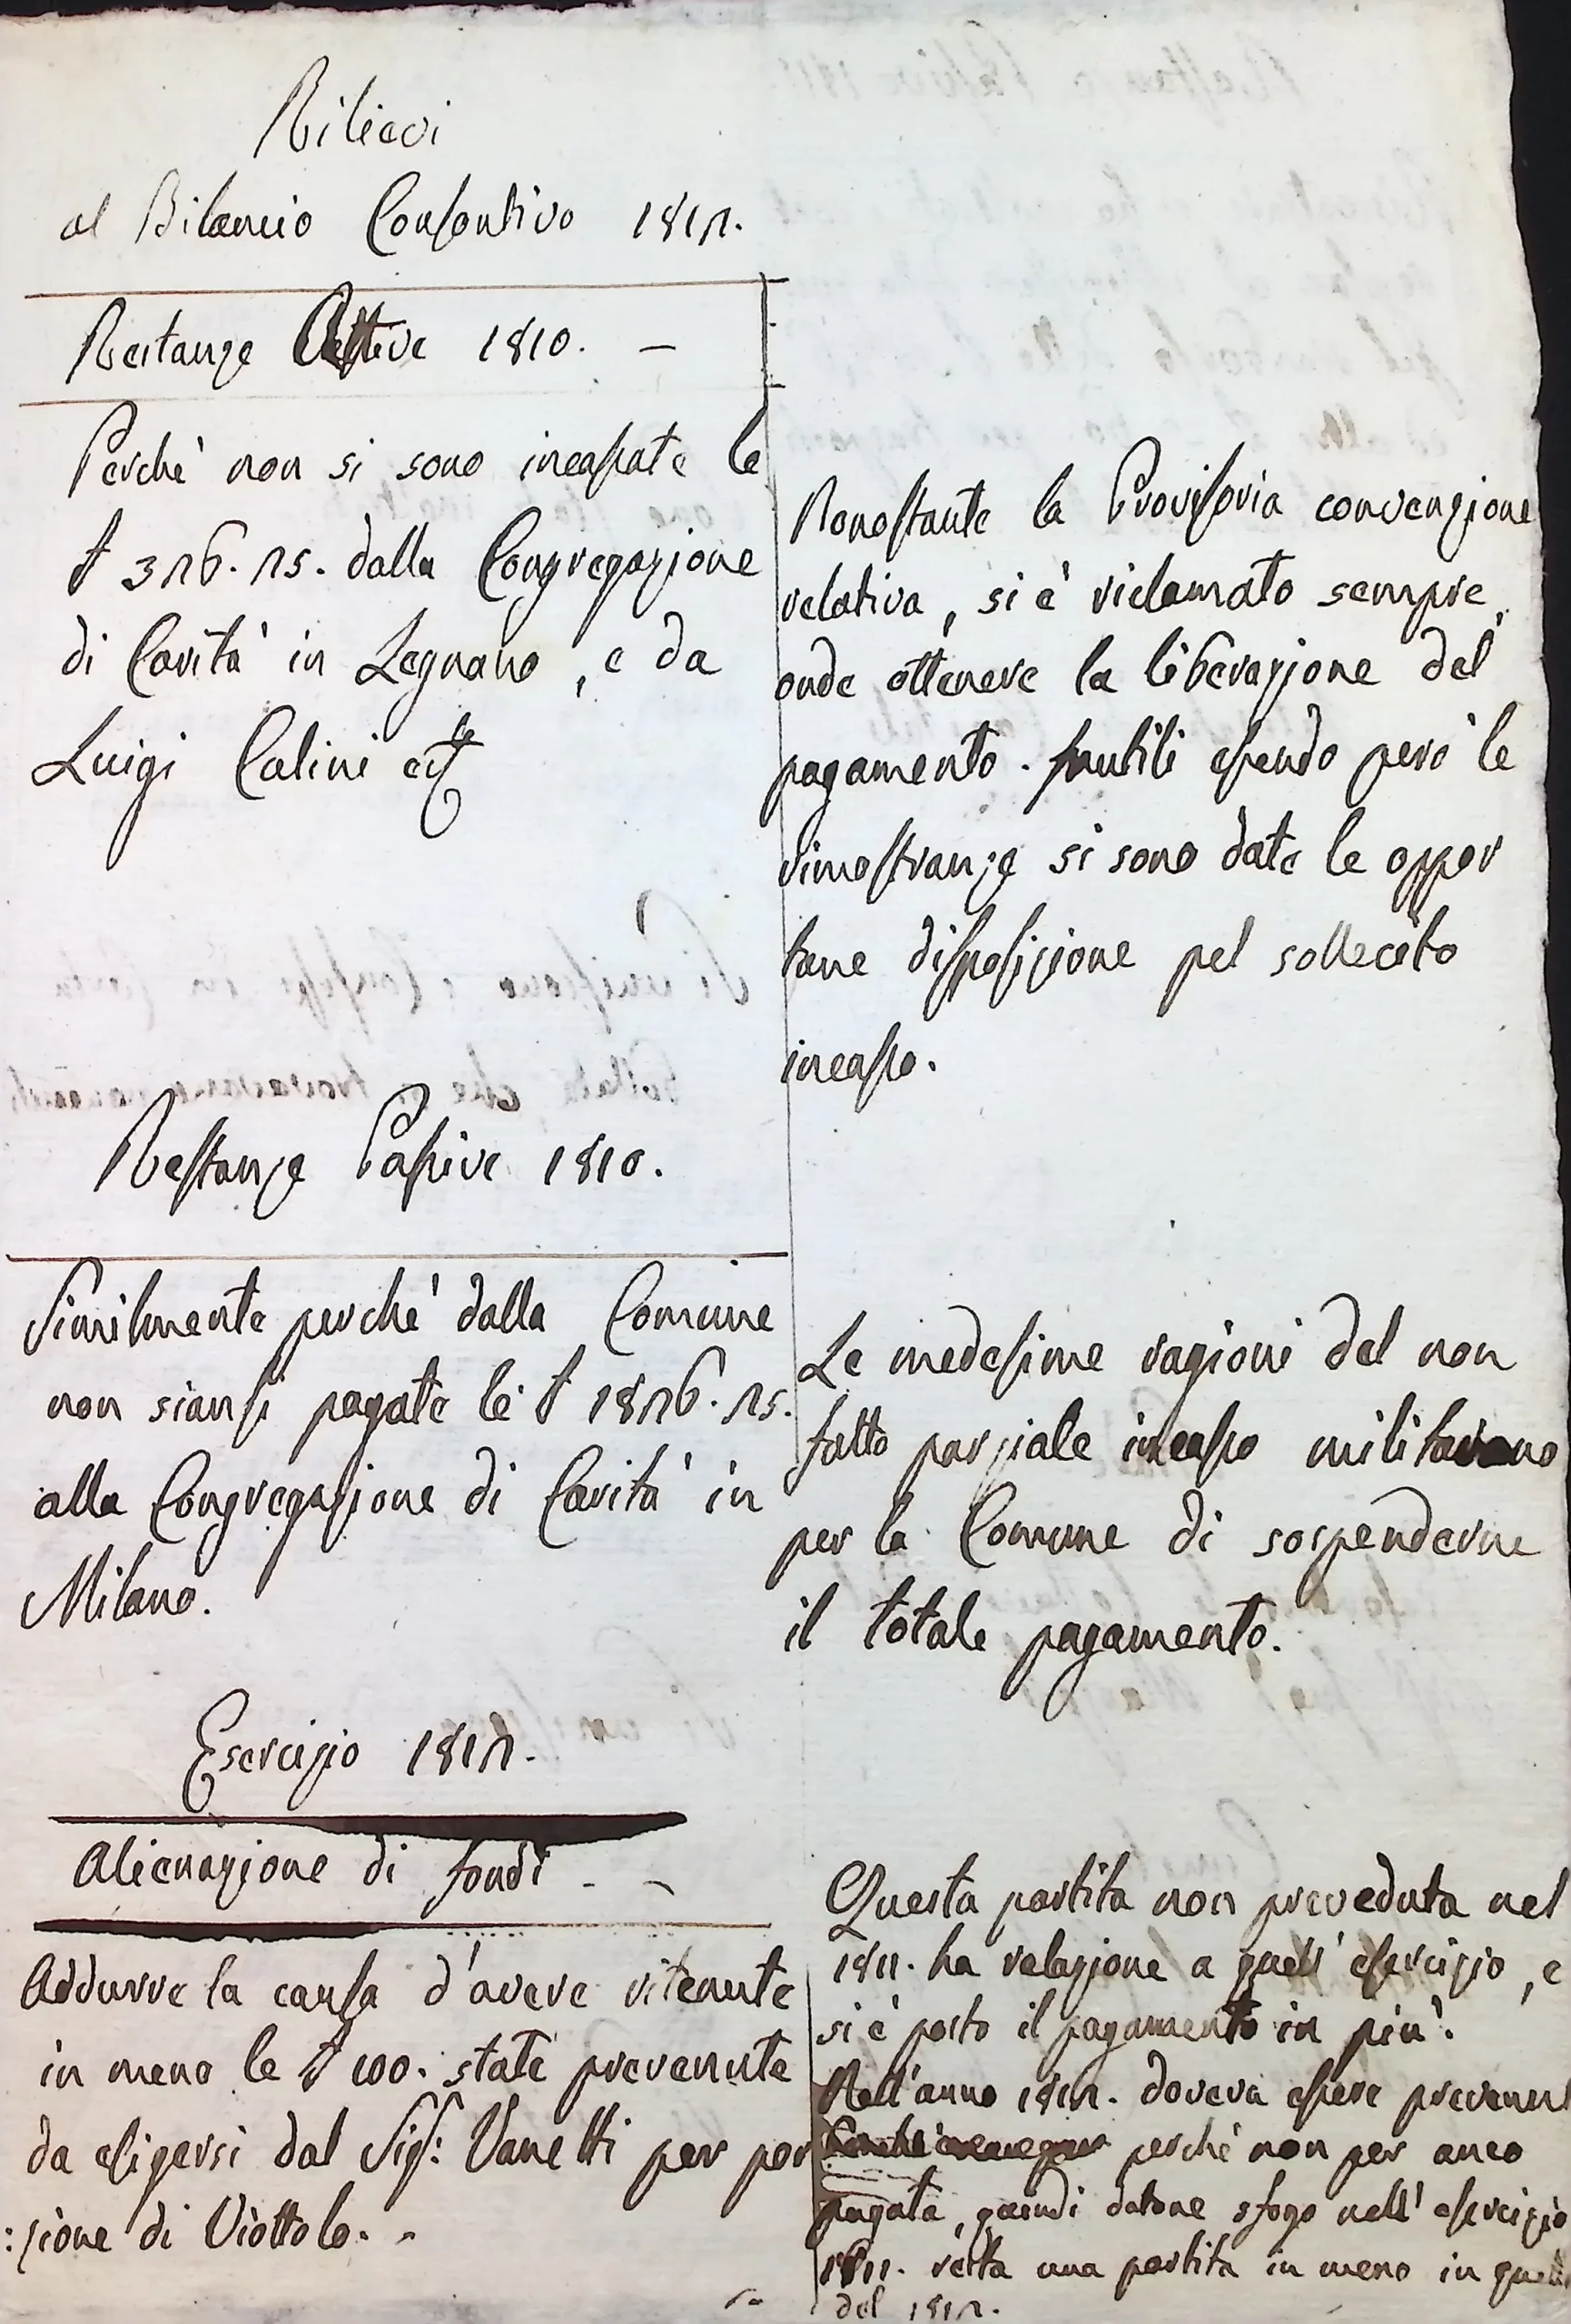 Rilievi
al Bilancio Consontivo 1812.
Restanze Attive 1810. —
Perchè non si sono incassate le
£ 326. 25. dalla Congregazione
di Carità in Legnano, e da
Luigi Calini
Restanze Passive 1810.
Similmente perchè dalla Comune
non siansi pagate le £ 1826. 25.
alla Congregazione di Carità in
Milano.
Esercizio 1812.
Alienazione di fondi - -
Addurre la causa d'avere ritenute
in meno le £ 100. state prevenute
da esigersi dal Sig: Vanetti per por
:zione di Viottolo. -
Nonostante la Provisoria convenzione
relativa, si è riclamato sempre,
onde ottenere la liberazione del
pagamento. Inutili essendo però le
rimostranze si sono date le oppor
tune disposizione pel sollecito
incasso.
Le medesime ragioni del non
fatto parziale incasso militavano
per la Comune di sospenderne
il totale pagamento.
Questa partita non preveduta nel
1811. ha relazione a quell' esercizio, e
si è posto il pagamento in più.
Nell'anno 1812. doveva essere
perchè non per anco
pagata, quindi datone sfogo nell' esercizio
1811. resta una partita in meno in
del 1812.